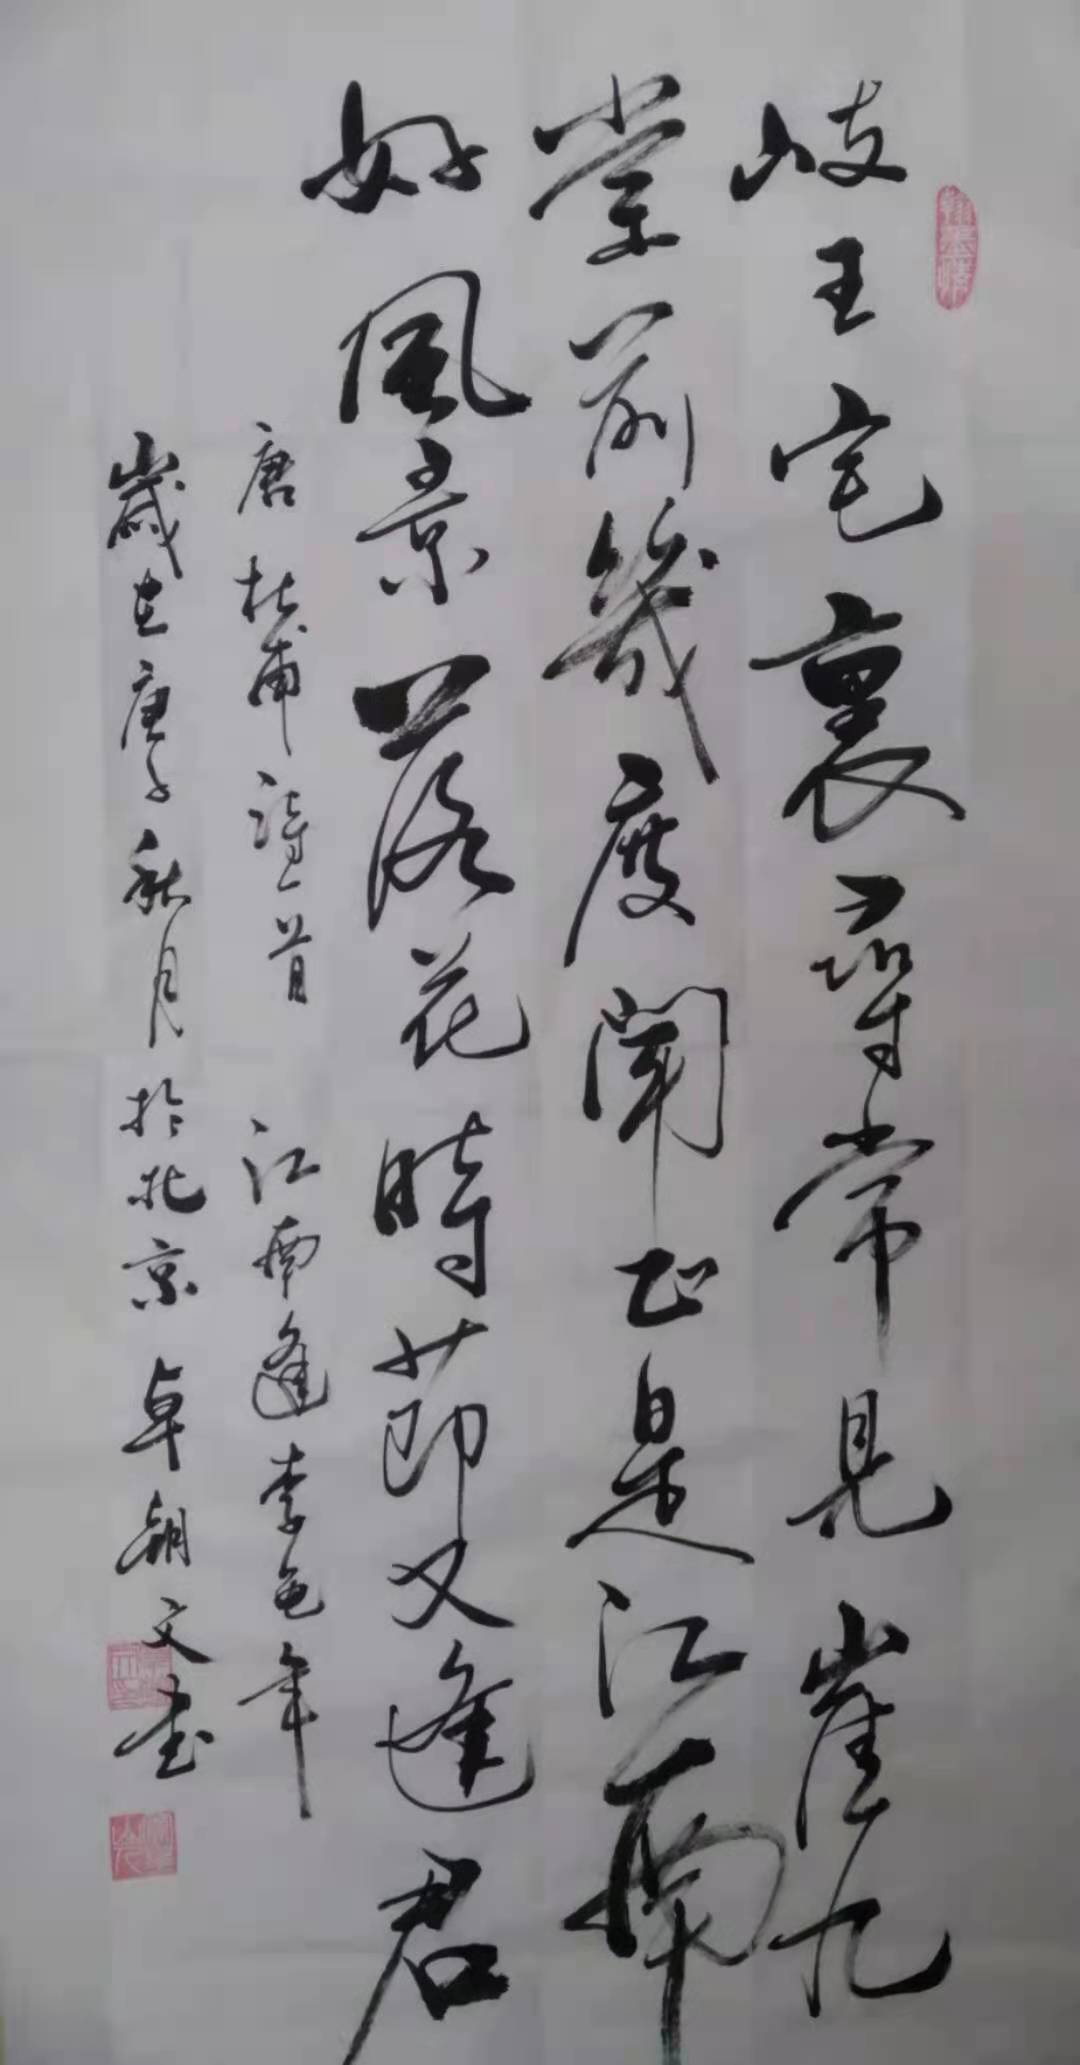 岐王宅裏尋常見崔九
堂前幾度聞正是江南
好風景落花時節又逢君
唐杜甫詩一首 江南逢李龟年
歲在庚子秋月於北京卓朝文书